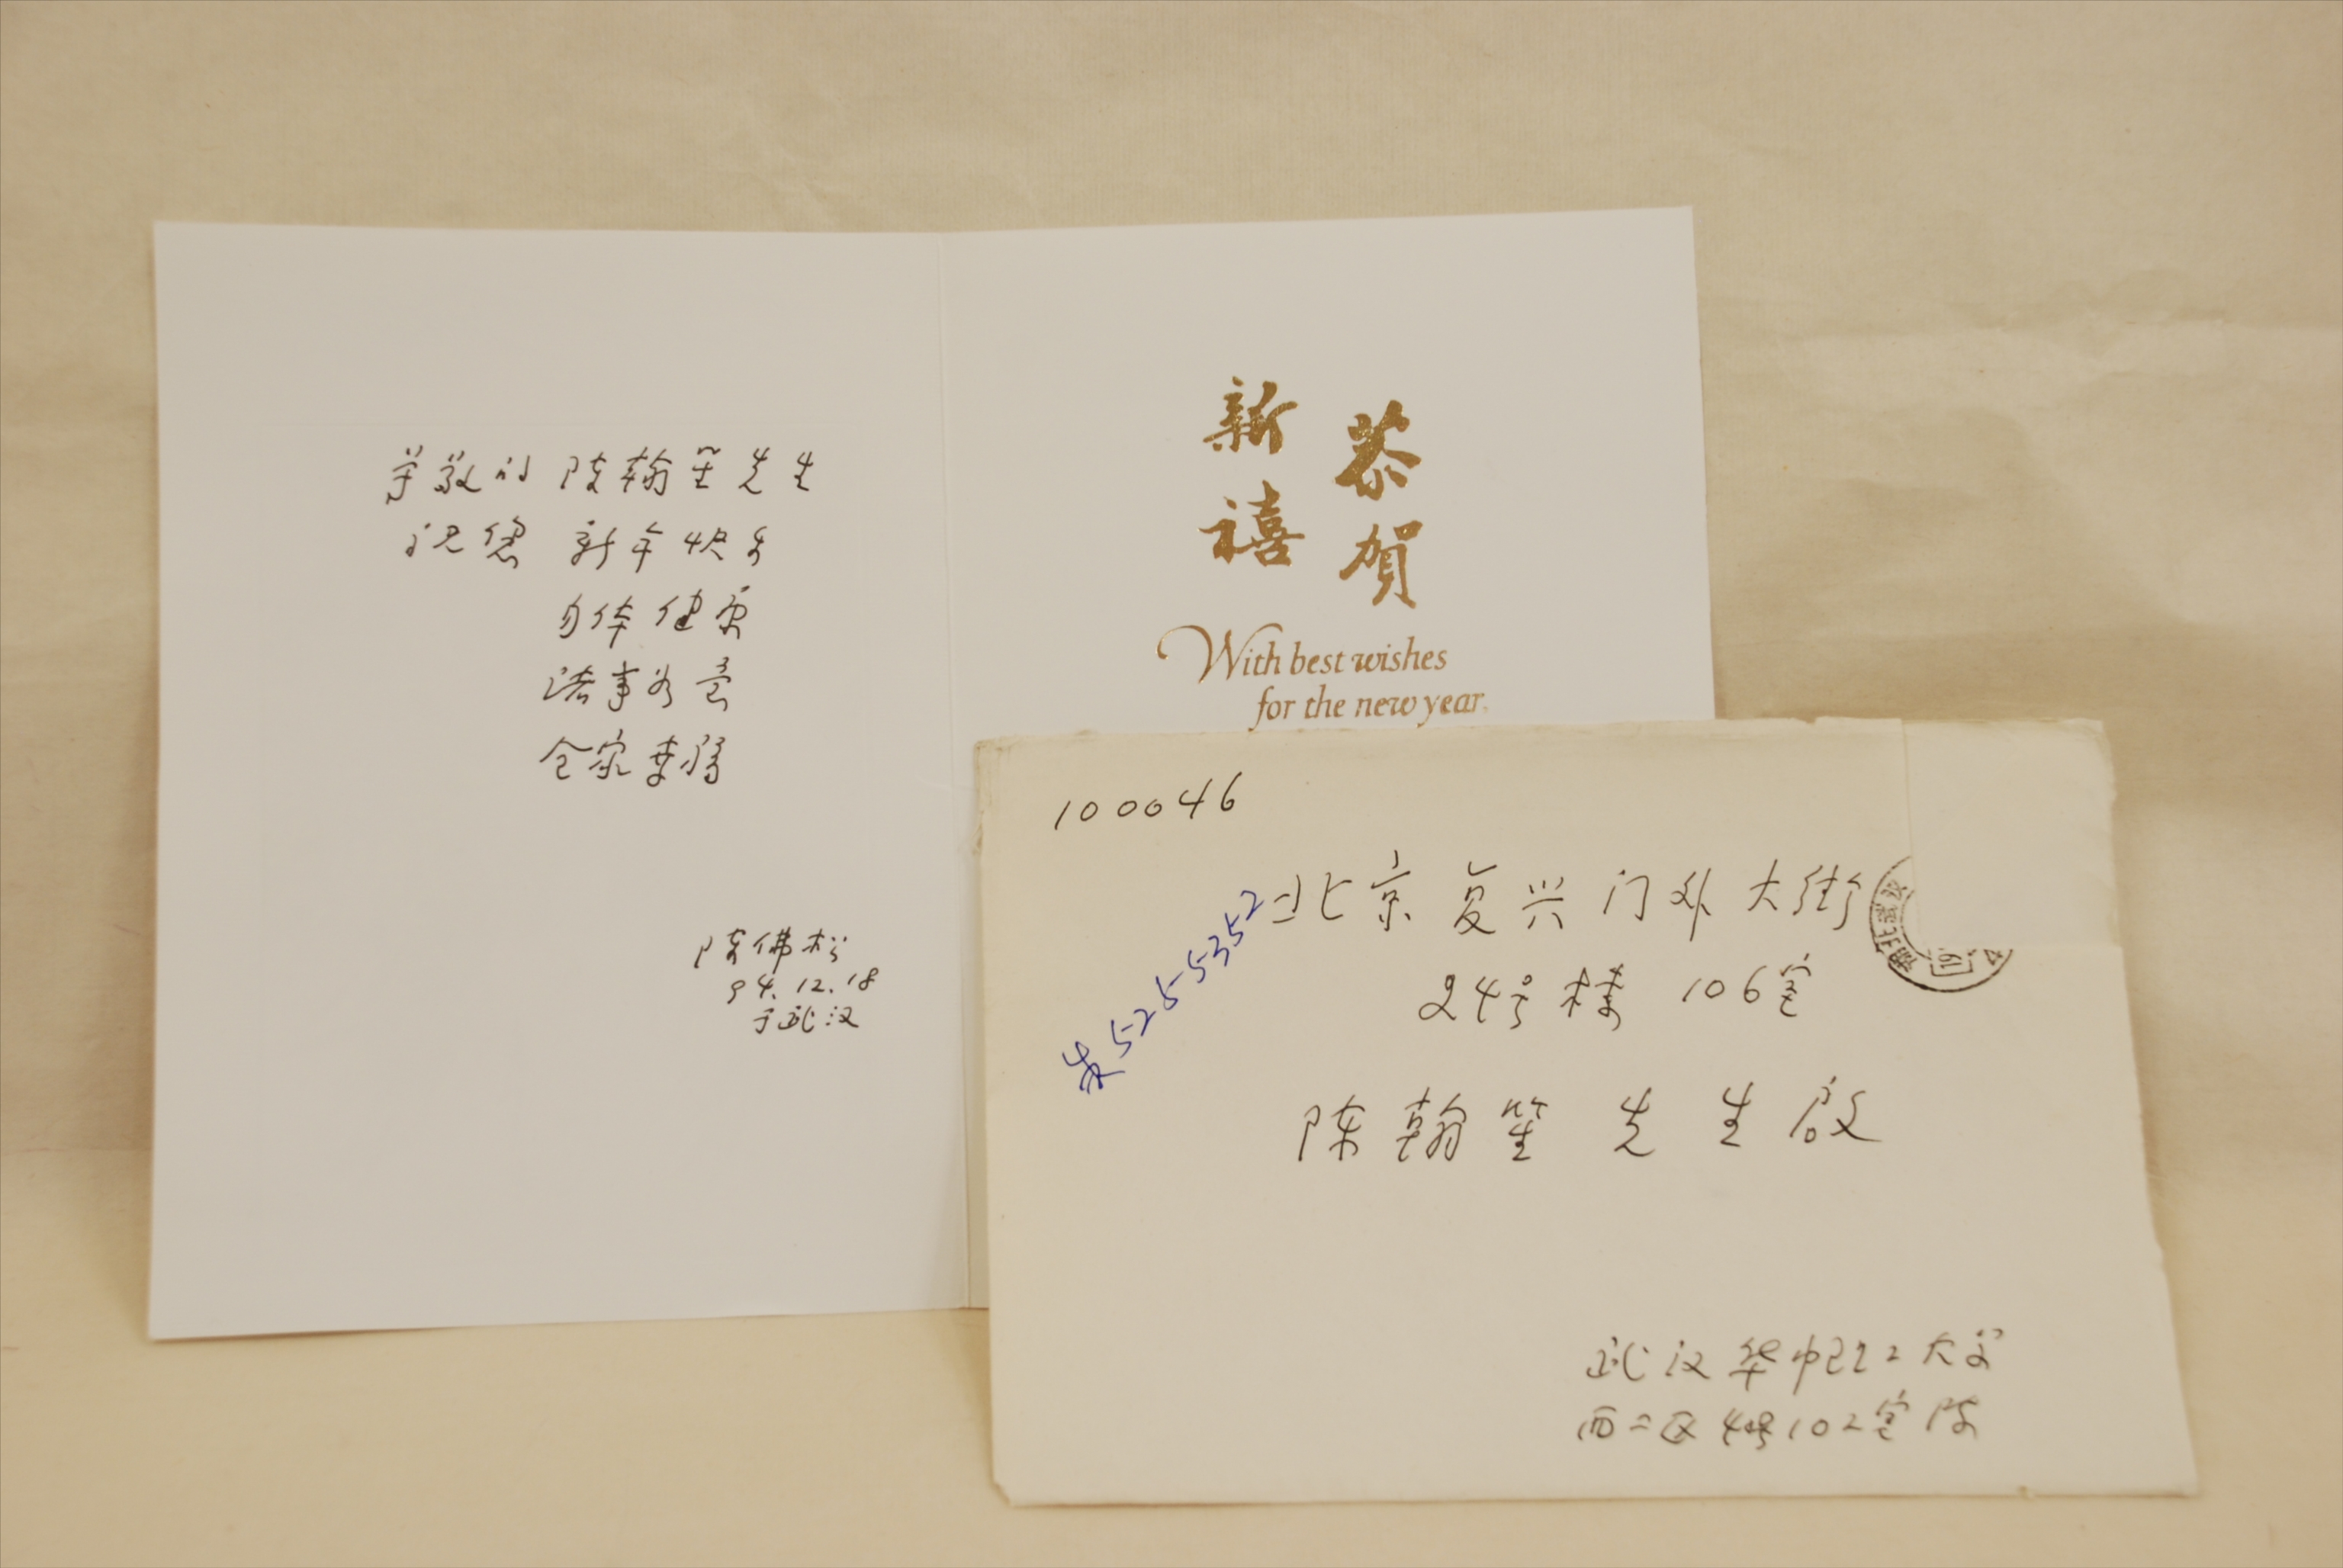 尊敬的 陈翰笙先生
祝您 新年快乐
身体健康
诸事如意
全家幸福
陈佛松
94.12.18
于武汉
恭贺
新禧
With best wishes
for the new year.
100046
北京复兴门外大街
24号楼 106室
朱 525-5352
陈翰笙 先生 启
武汉华中理工大学
西二区4号102室 陈
湖北武汉